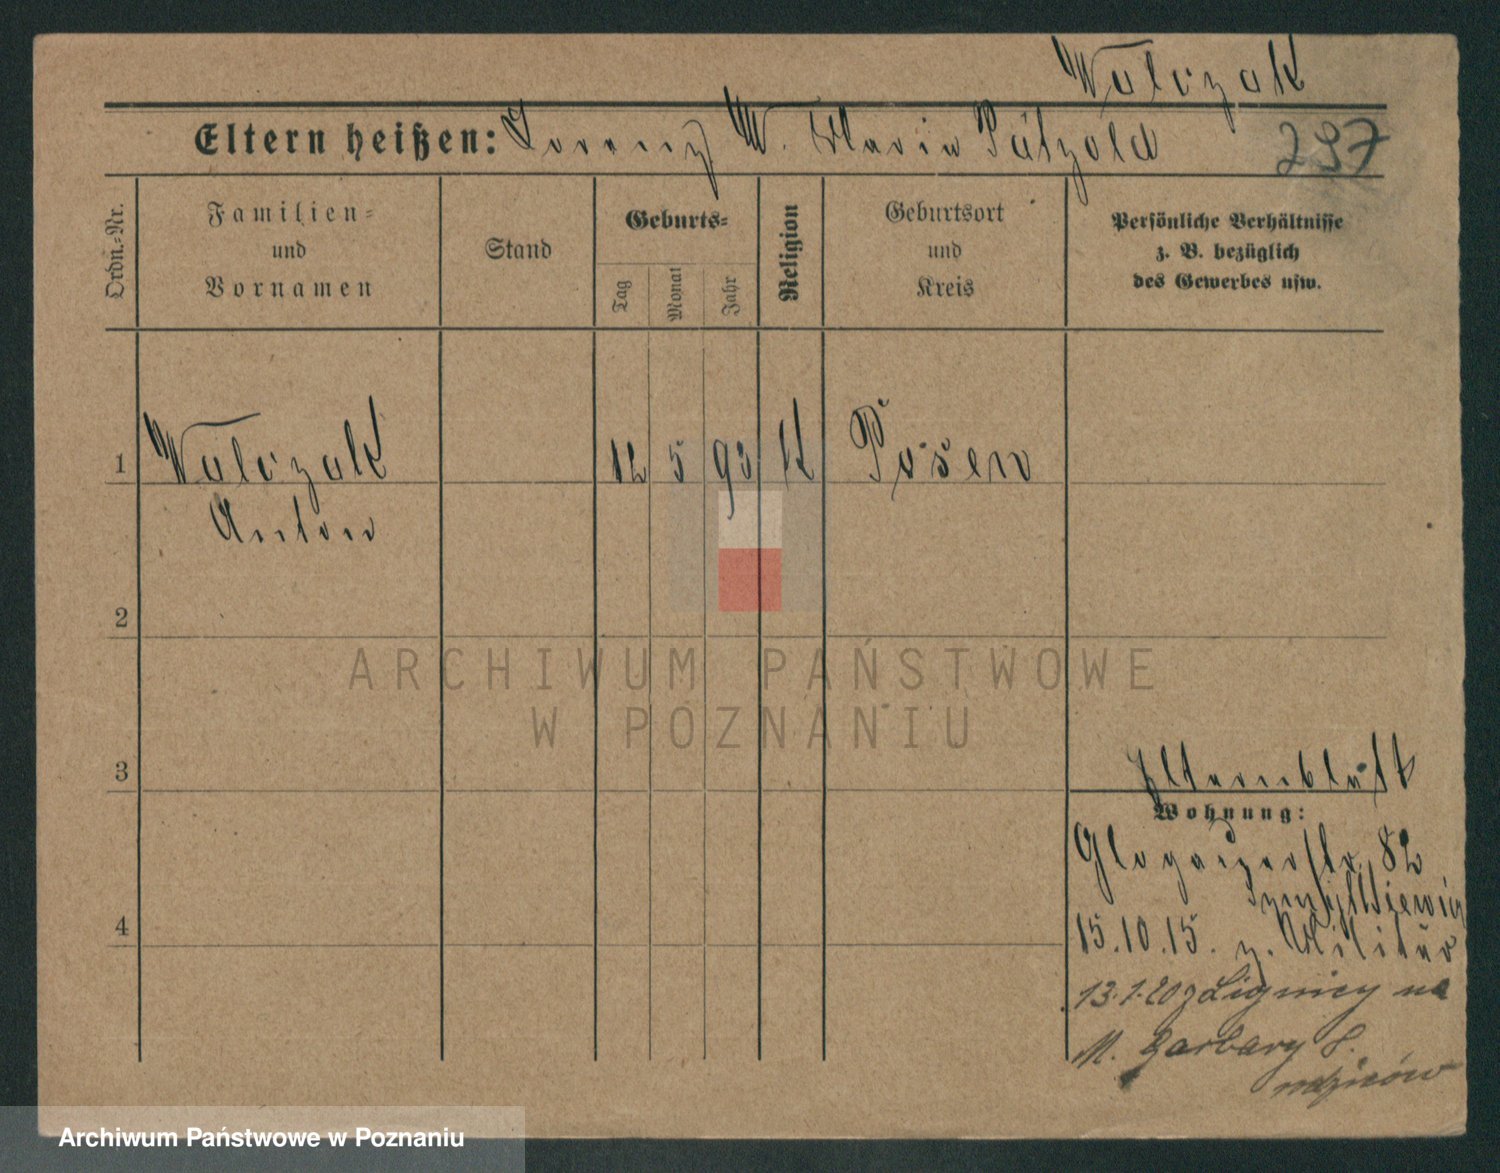 Walczak
Eltern heißen: Lorenz W. Maria Pätzold 297
Ordn.-Nr. Familien- und Vornamen Stand Geburts- Tag Monat Jahr Religion Geburtsort und Kreis Persönliche Verhältnisse z. B. bezüglich des Gewerbes usw.
1 Walczak 12 5 93 K Posen
Anton
2
ARCHIWUM PAŃSTWOWE
W POZNANIU
3 Elternblatt
Wohnung:
Glogauerstr. 82
4 15.10.15. z. Militär
13.1.20 z Lignicy na
M. Garbary 8.
rodziców
Archiwum Państwowe w Poznaniu